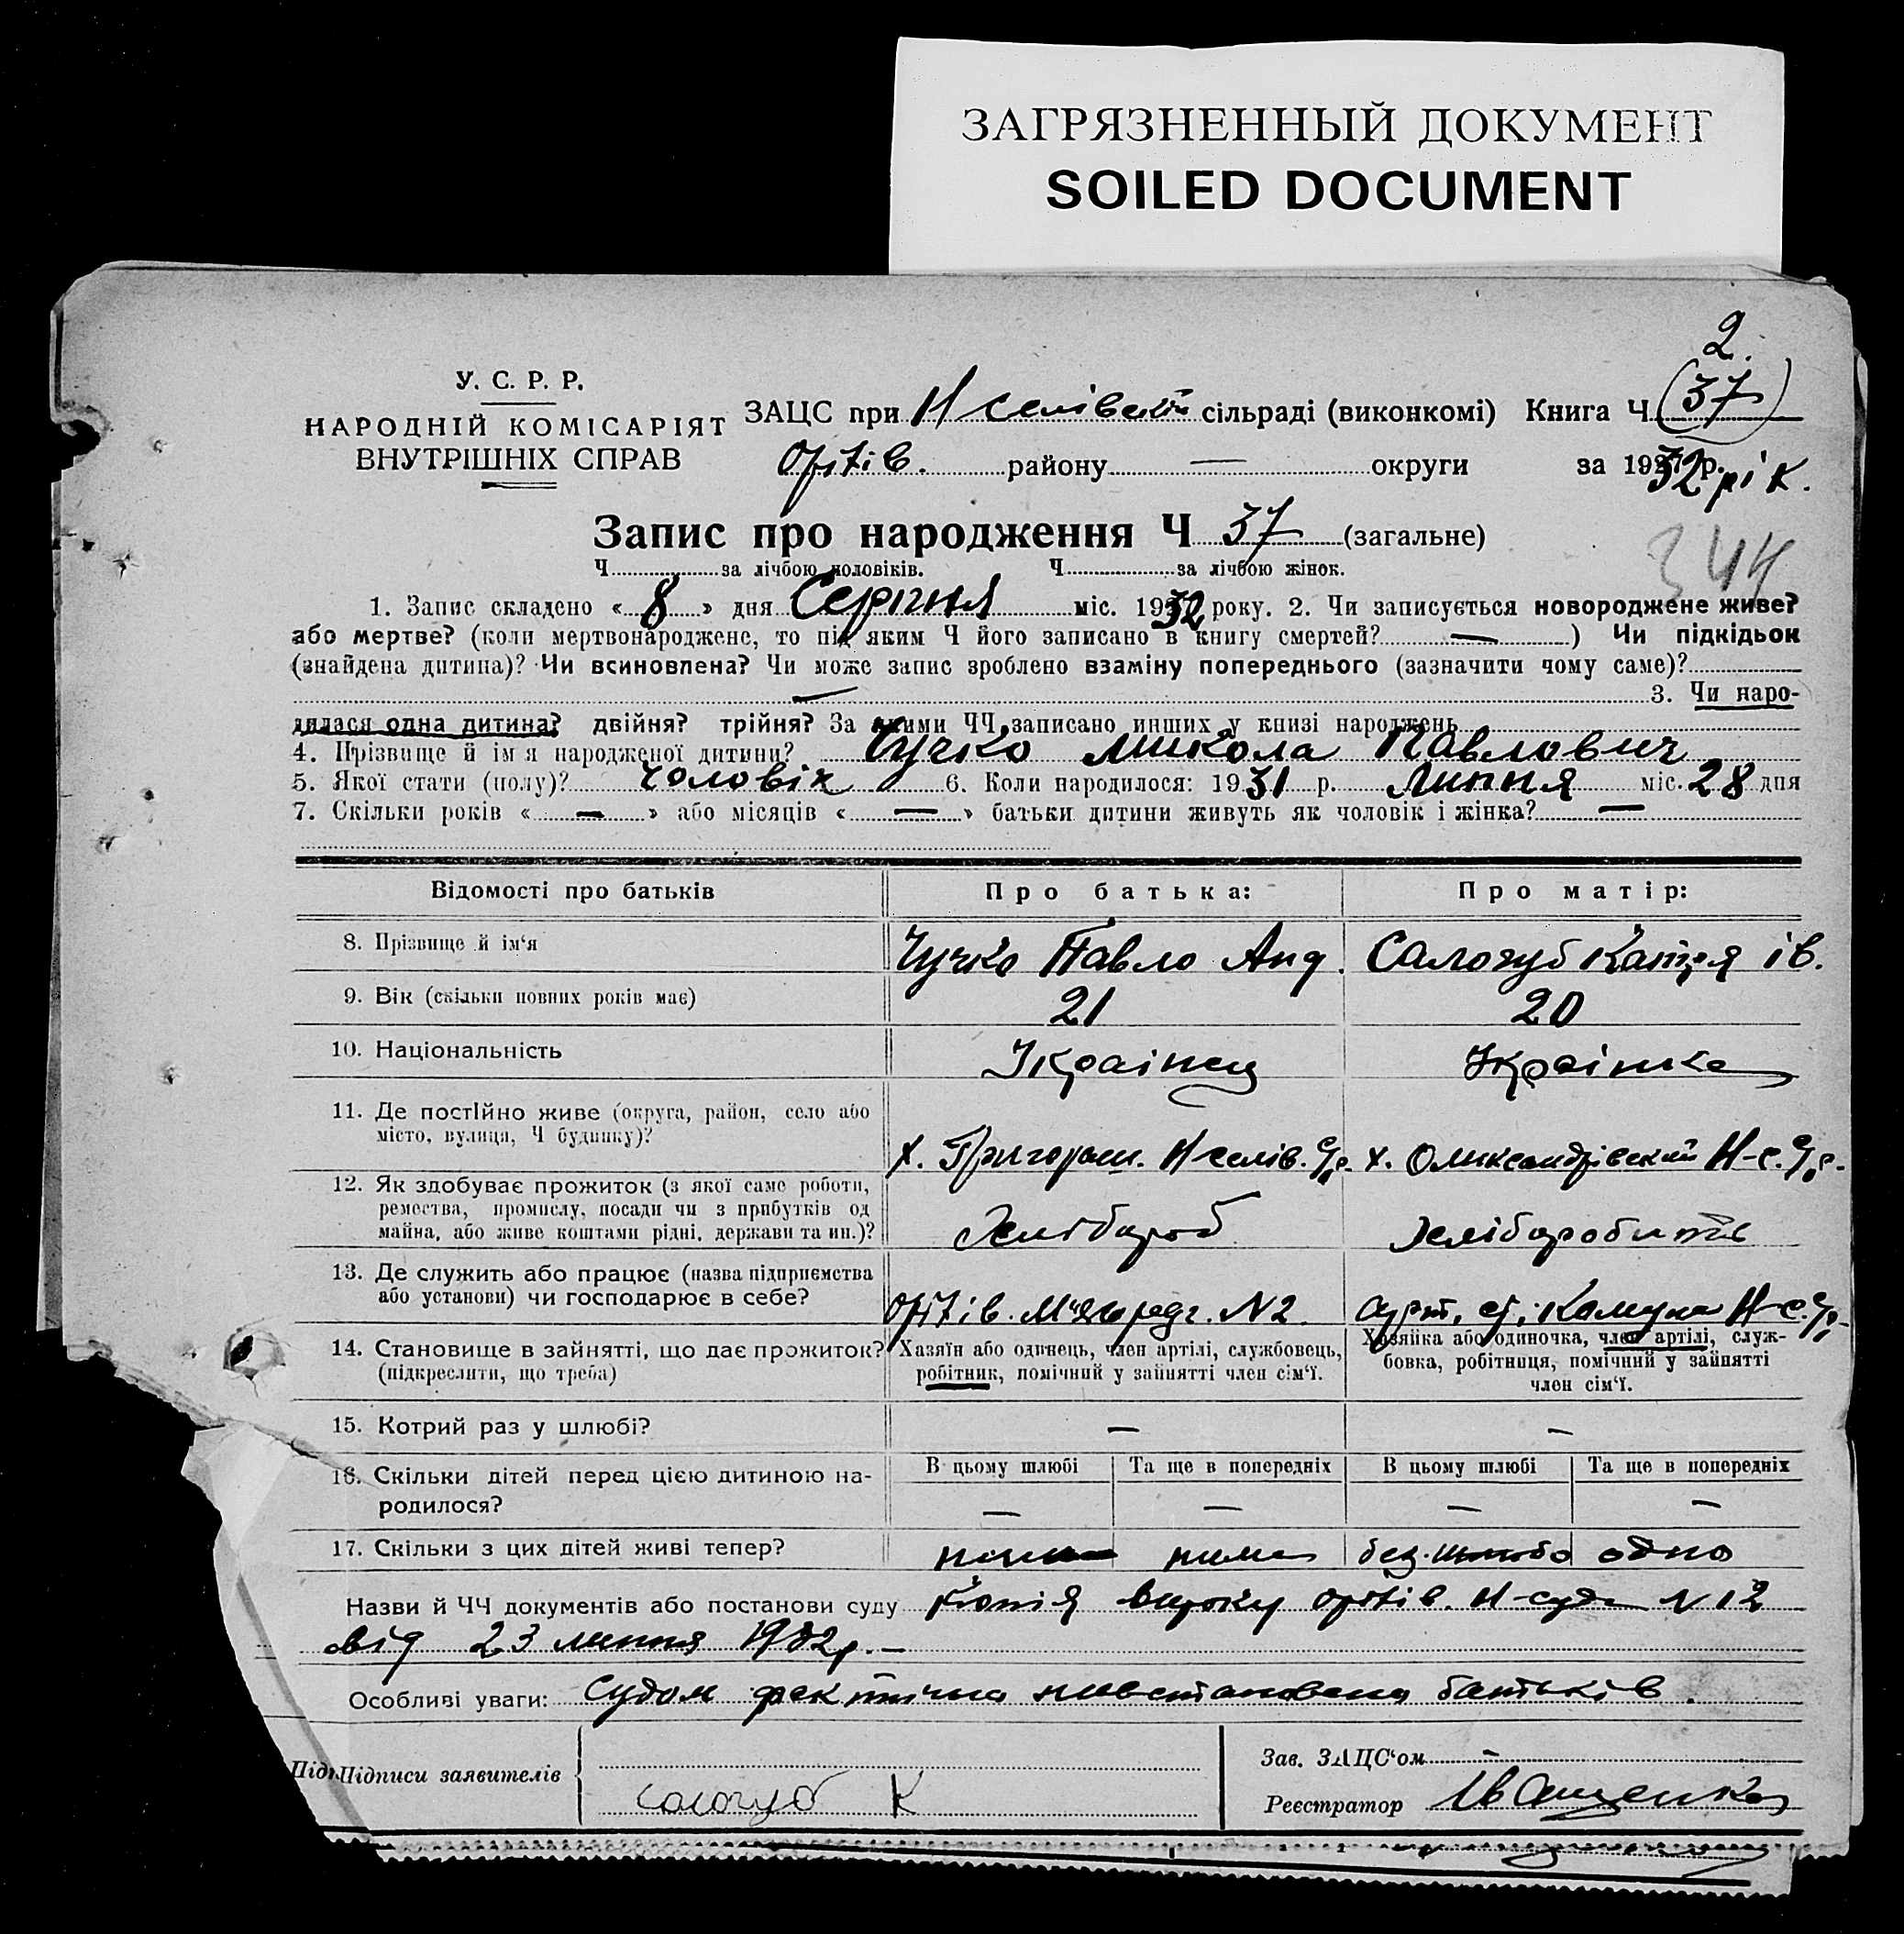 ЗАГРЯЗНЕННЫЙ ДОКУМЕНТ
SOILED DOCUMENT
2.
У. С. Р. Р.
НАРОДНІЙ КОМІСАРІЯТ
ВНУТРІШНІХ СПРАВ
ЗАЦС при Н селівській сільраді (виконкомі) Книга Ч. (37)
району — округи за 1932 рік.
Запис про народження Ч 37 (загальне)
Ч. за лічбою чоловіків. Ч. за лічбою жінок.
344
1. Запис складено « 8 » дня Серпня міс. 1932 року. 2. Чи записується новороджене живе?
або мертве? (коли мертвонароджене, то під яким Ч його записано в книгу смертей? — ) Чи підкідьок
(знайдена дитина)? Чи всиновлена? Чи може запис зроблено взаміну попереднього (зазначити чому саме)?
— 3. Чи наро-
дилася одна дитина? двійня? трійня? За якими ЧЧ записано инших у книзі народжень
4. Прізвище й ім'я народженої дитини? Чучко Микола Павлович
5. Якої стати (полу)? чоловік 6. Коли народилося: 1931 р. Липня міс. 28 дня
7. Скільки років « — » або місяців « — » батьки дитини живуть як чоловік і жінка? —
Відомості про батьків Про батька: Про матір:
8. Прізвище й ім'я Чучко Павло Анд. Сологуб Катря ів.
9. Вік (скільки повних років має) 21 20
10. Національність Українец Українка
11. Де постійно живе (округа, район, село або
місто, вулиця, Ч будинку)? х. Григораш. Н селів. С/р. х. Олександрівский Н-с. С/р.
12. Як здобуває прожиток (з якої саме роботи,
ремества, промислу, посади чи з прибутків од
майна, або живе коштами рідні, держави та ин.)? Хлібороб Хліборобить
13. Де служить або працює (назва підприємства
або установи) чи господарює в себе? N2. Комуна Н-с. С/р.
14. Становище в зайнятті, що дає прожиток? Хазяїн або одинець, член артілі, службовець, Хазяйка або одиночка, член артілі, служ-
(підкреслити, що треба) робітник, помічний у зайнятті член сім'ї. бовка, робітниця, помічний у зайнятті
член сім'ї.
15. Котрий раз у шлюбі? — —
16. Скільки дітей перед цією дитиною на- В цьому шлюбі Та ще в попередніх В цьому шлюбі Та ще в попередніх
родилося? — — — —
17. Скільки з цих дітей живі тепер? нима без. шлюбо одно
Назви й ЧЧ документів або постанови суду Копія вироку Н-суда N 12
від 23 липня 1932р. —
Особливі уваги: Судом фактично батьків.
Підписи заявителів
Сологуб К
Зав. ЗАЦС'ом —
Реєстратор Іващенко